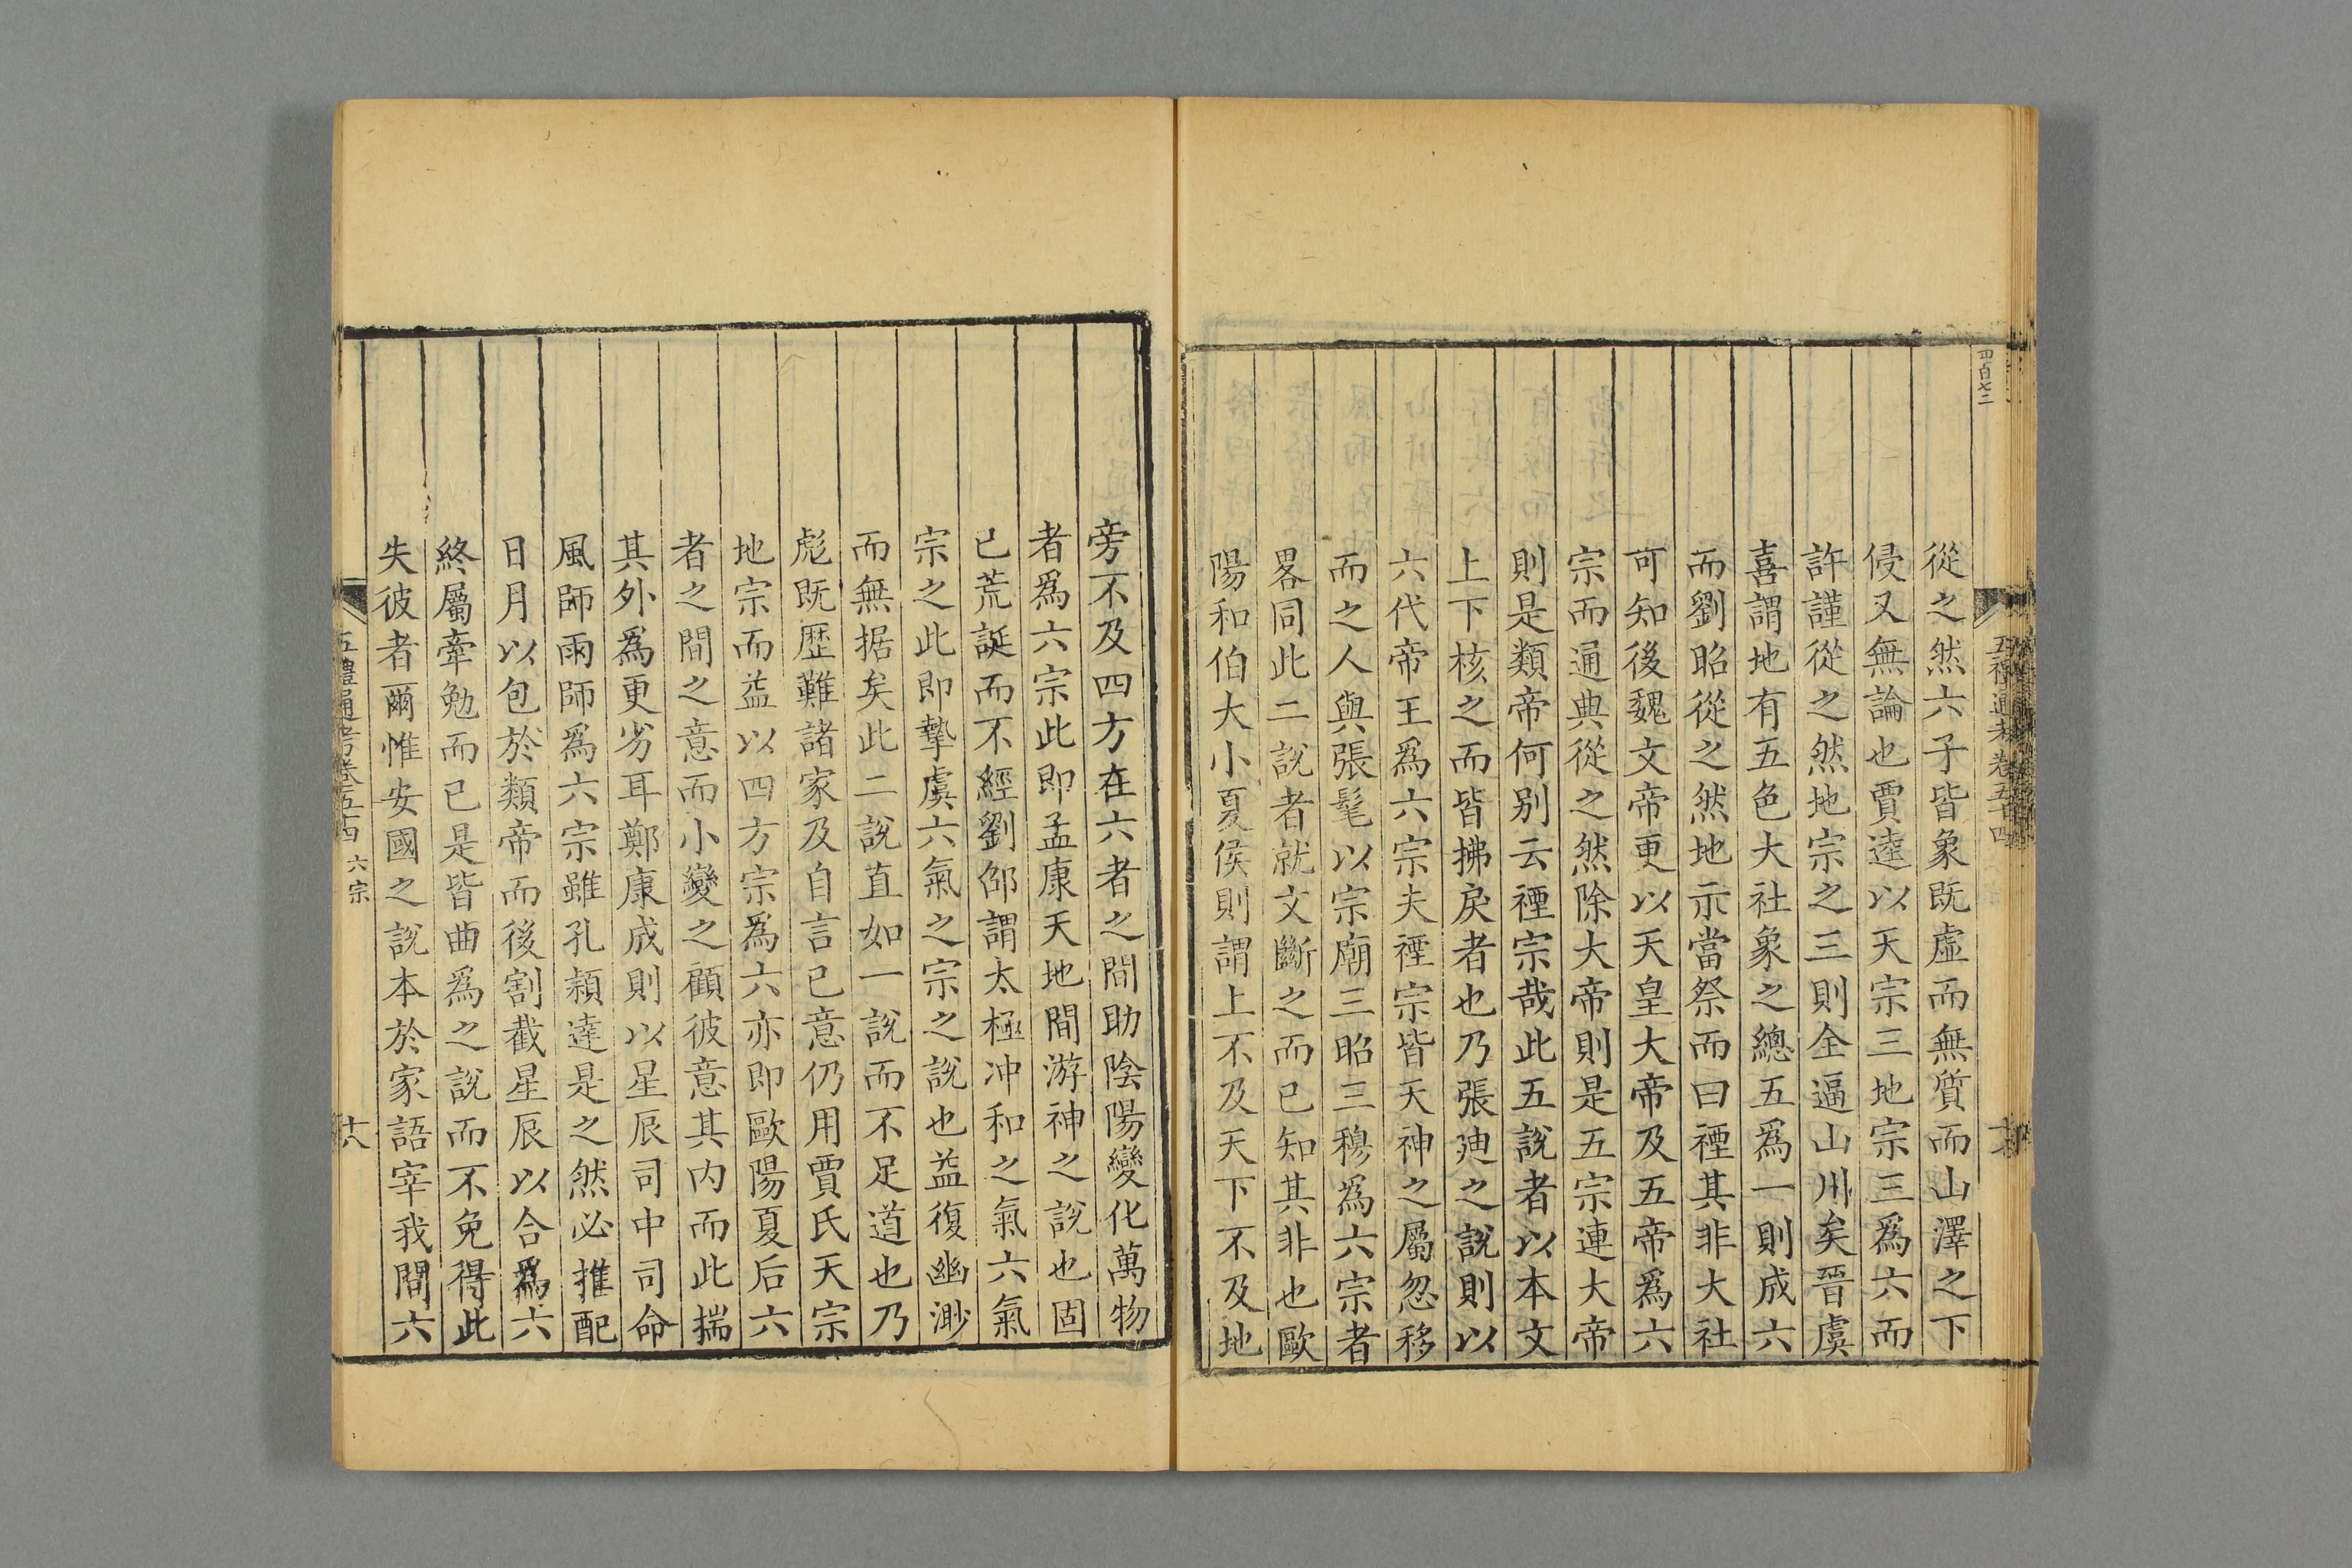 四百七二
五禮通考卷五十四
從之然六子皆象既虛而無質而山澤之下
侵又無論也賈逵以天宗三地宗三爲六而
許謹從之然地宗之三則全逼山川矣晉虞
喜謂地有五色大社象之總五爲一則成六
而劉昭從之然地示當祭而曰禋其非大社
可知後魏文帝更以天皇大帝及五帝爲六
宗而通典從之然除大帝則是五宗連大帝
則是類帝何别云禋宗哉此五說者以本文
上下核之而皆拂戾者也乃張廸之說則以
六代帝王爲六宗夫禋宗皆天神之屬忽移
而之人與張髦以宗廟三昭三穆爲六宗者
畧同此二說者就文斷之而已知其非也歐
陽和伯大小夏侯則謂上不及天下不及地
旁不及四方在六者之間助陰陽變化萬物
者爲六宗此即孟康天地間游神之說也固
已荒誕而不經劉邵謂太極冲和之氣六氣
宗之此即摯虞六氣之宗之說也益復幽渺
而無据矣此二說直如一說而不足道也乃
彪既歷難諸家及自言已意仍用賈氏天宗
地宗而益以四方宗爲六亦即歐陽夏后六
者之間之意而小變之顧彼意其内而此揣
其外爲更劣耳鄭康成則以星辰司中司命
風師雨師爲六宗雖孔穎達是之然必推配
日月以包於類帝而後割截星辰以合爲六
終屬牽勉而已是皆曲爲之說而不免得此
失彼者爾惟安國之說本於家語宰我問六
五禮通考卷五十四 六宗
十六